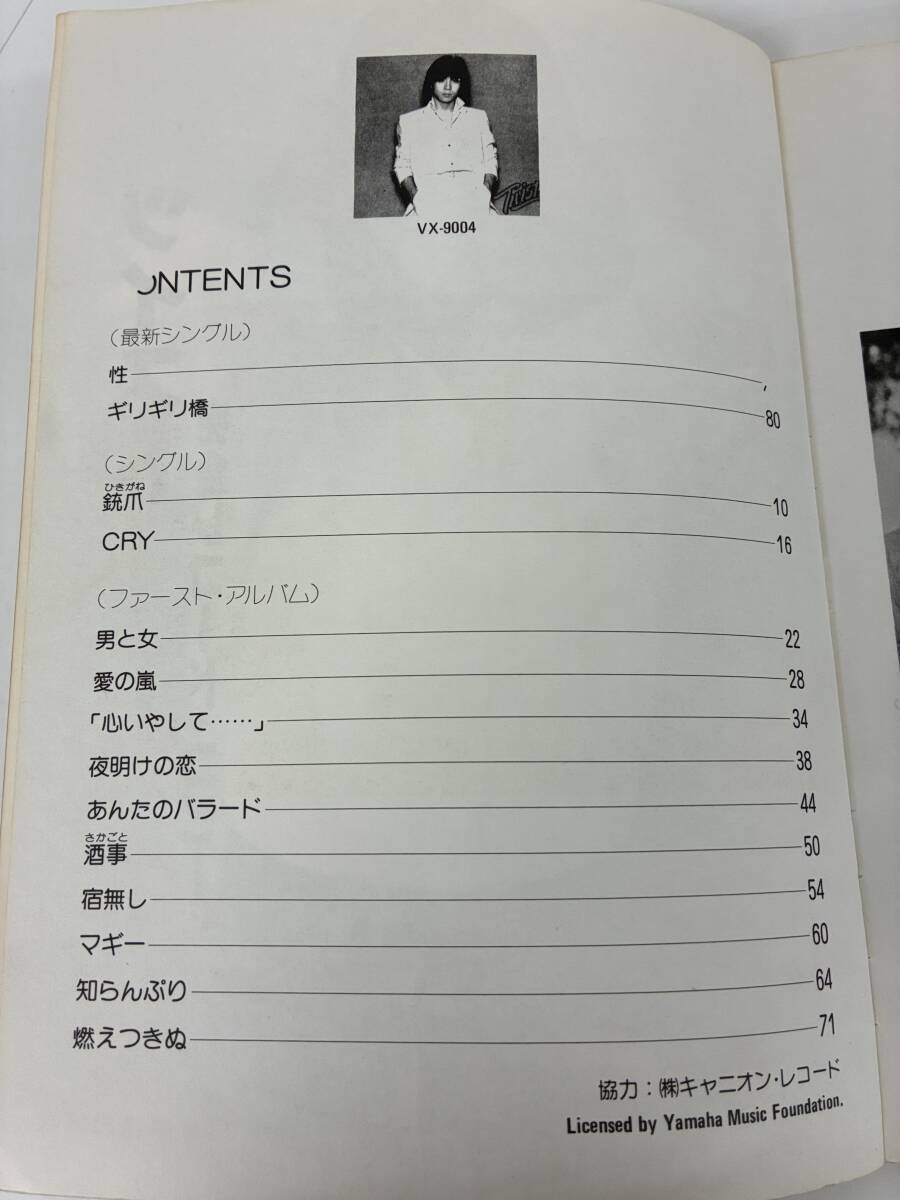 Twist
VX-9004
ONTENTS
（最新シングル）
性
ギリギリ橋 80
（シングル）
ひきがね
銃爪 10
CRY 16
（ファースト・アルバム）
男と女 22
愛の嵐 28
「心いやして……」 34
夜明けの恋 38
あんたのバラード 44
さかごと
酒事 50
宿無し 54
マギー 60
知らんぷり 64
燃えつきぬ 71
協力：㈱キャニオン・レコード
Licensed by Yamaha Music Foundation.